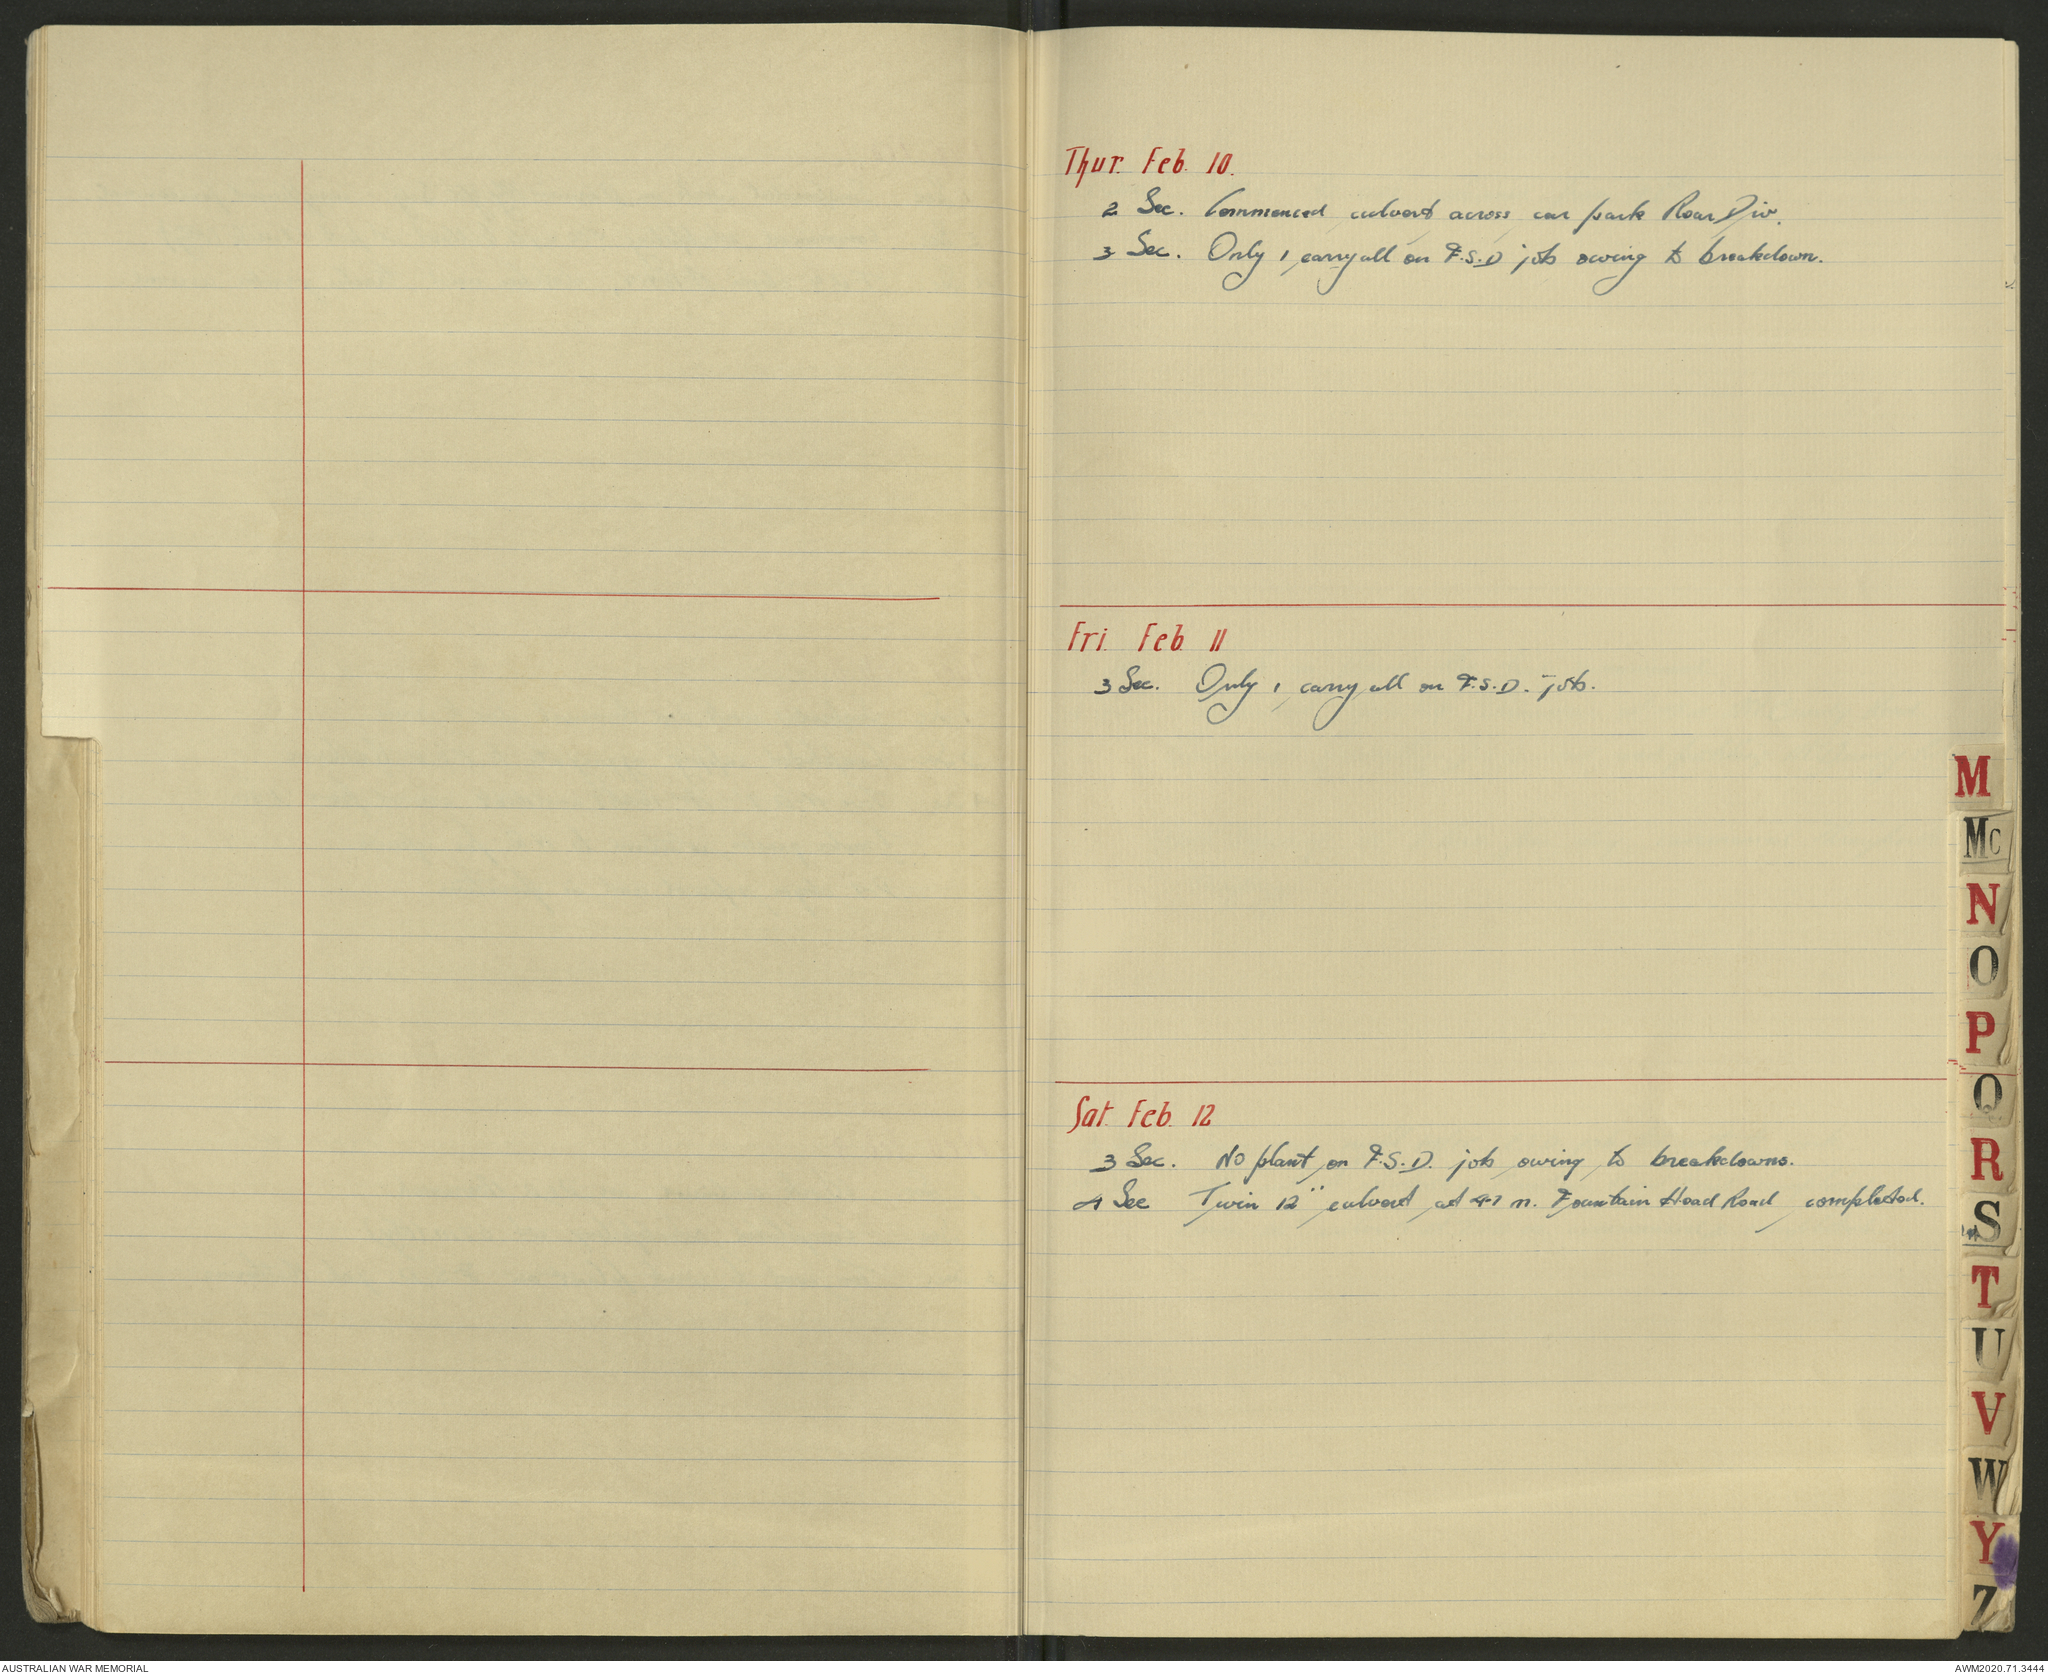 Thur. Feb. 10.
2 Sec. Commenced culvert across car park Rear Div.
3 Sec. Only 1 carryall on F.S.D job owing to breakdown.
Fri. Feb. 11
3 Sec. Only 1 carryall on F.S.D. job.
Sat. Feb. 12
3 Sec. No plant on F.S.D. job owing to breakdowns.
4 Sec Twin 12" culvert at 4.7 m. Fountain Head Road completed.
M
Mc
N
O
P
Q
R
S
T
U
V
W
Y
Z
AUSTRALIAN WAR MEMORIAL
AWM2020.71.3444